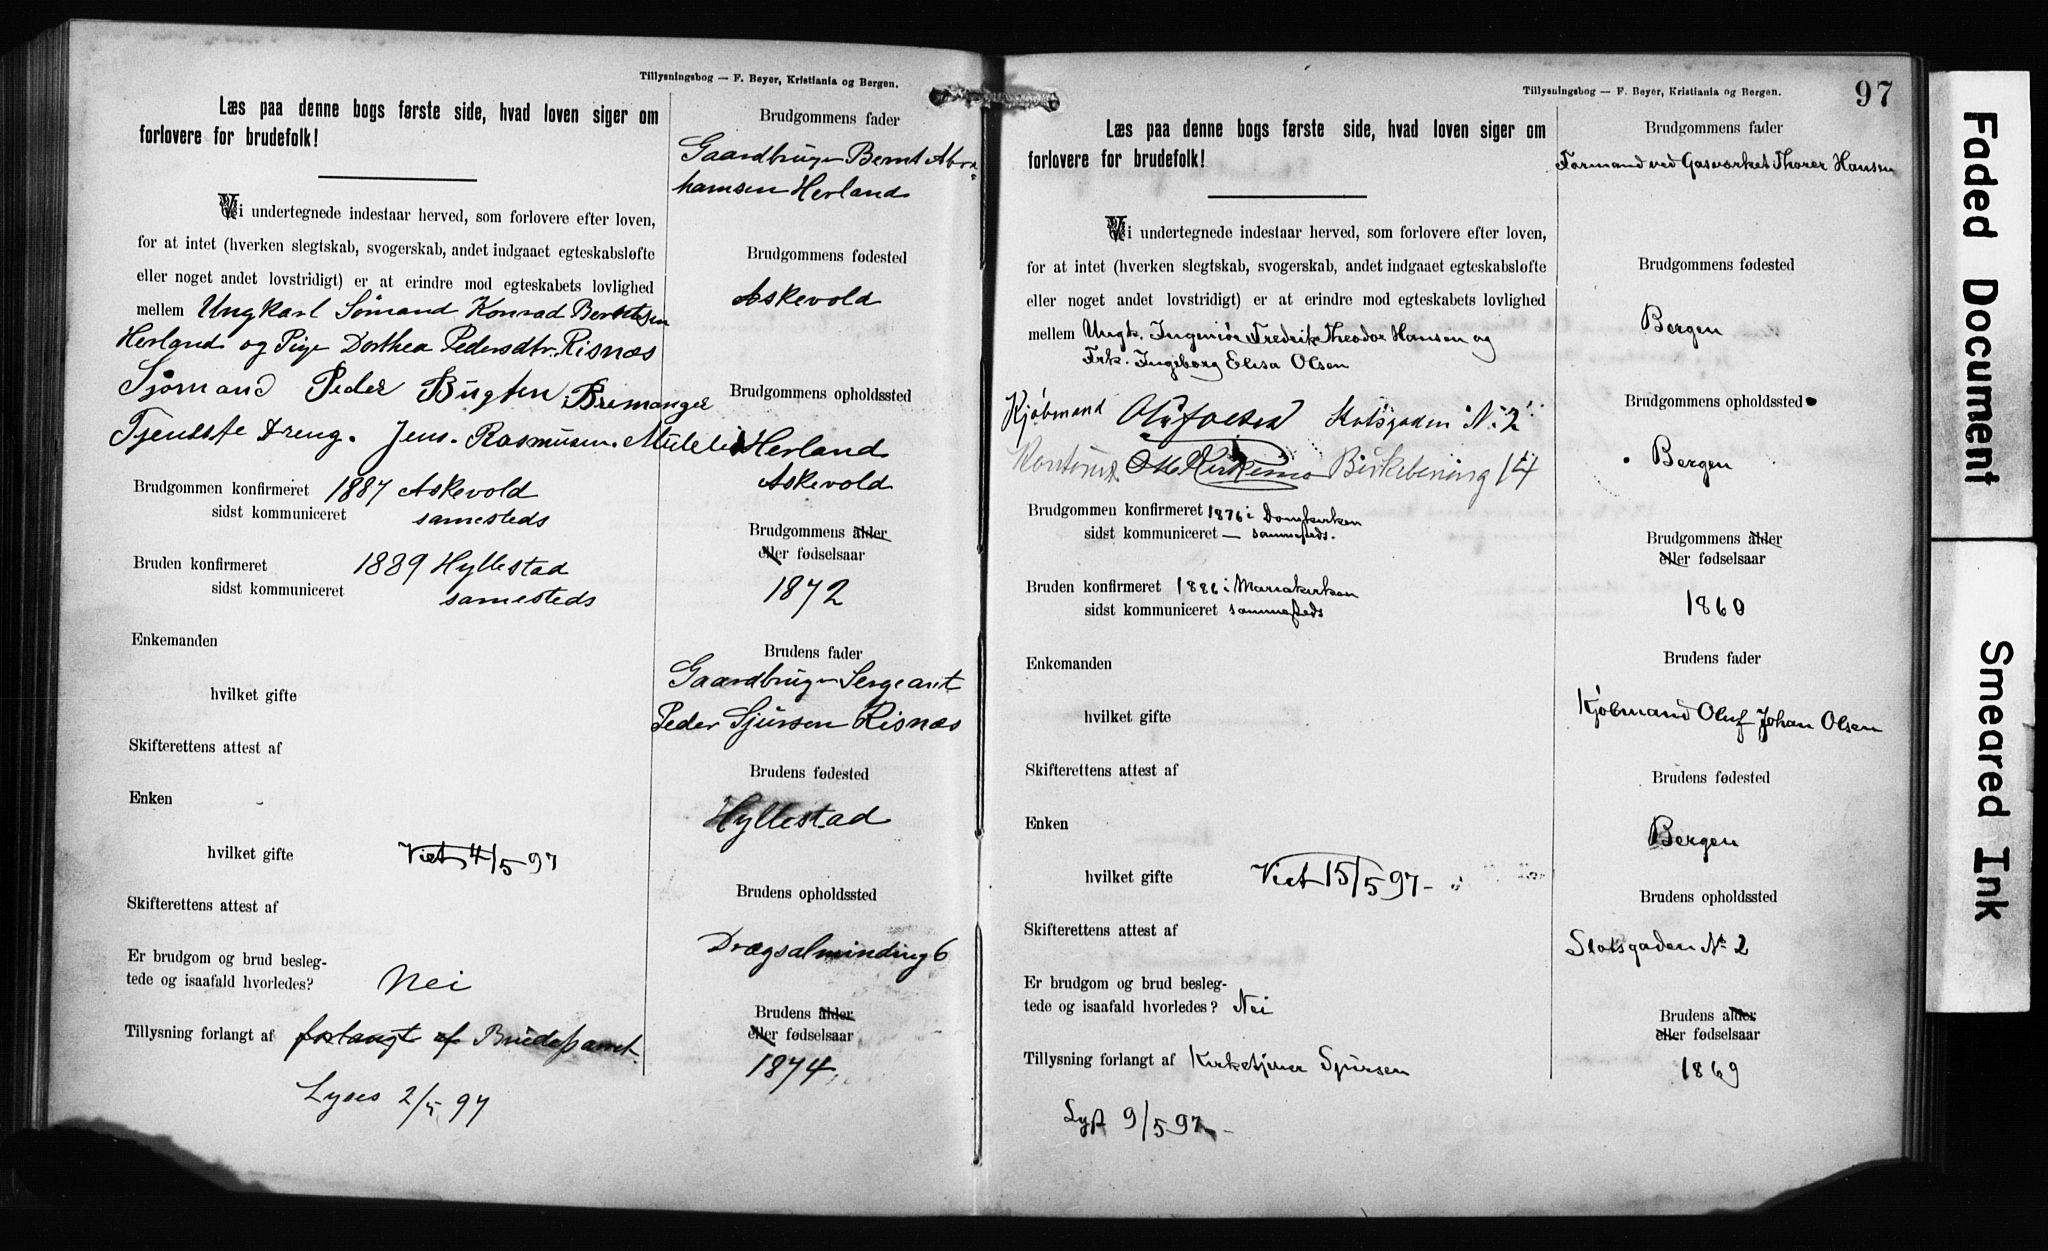 Tillysningsbog — F. Beyer, Kristiania og Bergen.
Læs paa denne bogs første side, hvad loven siger om
forlovere for brudefolk!
Vi undertegnede indestaar herved, som forlovere efter loven,
for at intet (hverken slegtskab, svogerskab, andet indgaaet egteskabsløfte
eller noget andet lovstridigt) er at erindre mod egteskabets lovlighed
mellem Ungkarl Sømand Konrad Berntsen
Herland og Pige Dorthea Pedersdtr. Risnæs
Sjømand Peder Bugten Bremanger
Tjeneste dreng. Jens Rasmusen
Brudgommen konfirmeret 1887 Askevold
sidst kommuniceret samesteds
Bruden konfirmeret 1889 Hyllestad
sidst kommuniceret samesteds
Enkemanden
hvilket gifte
Skifterettens attest af
Enken
hvilket gifte Viet 4/5 97
Skifterettens attest af
Er brudgom og brud besleg-
tede og isaafald hvorledes? Nei
Tillysning forlangt af forlangt af Brudeparret
Lyses 2/5 97
Brudgommens fader
Gaardbruger Bernt Abra
hamsen Herland
Brudgommens fødested
Askevold
Brudgommens opholdssted
Herland
Askevold
Brudgommens alder
eller fødselsaar
1872
Brudens fader
Gaardbruger Sergeant
Peder Sjursen Risnæs
Brudens fødested
Hyllestad
Brudens opholdssted
Drægsalminding 6
Brudens alder
eller fødselsaar
1874
Tillysningsbog — F. Beyer, Kristiania og Bergen.
97
Læs paa denne bogs første side, hvad loven siger om
forlovere for brudefolk!
Vi undertegnede indestaar herved, som forlovere efter loven,
for at intet (hverken slegtskab, svogerskab, andet indgaaet egteskabsløfte
eller noget andet lovstridigt) er at erindre mod egteskabets lovlighed
mellem Ungk. Ingeniør Fredrik Theodor Hansen og
Frk. Ingeborg Elisa Olsen
Kjøbmand Oluf Olsen Slotsgaden No 2
Birkebeinerg 14
Brudgommen konfirmeret 1876 i Domkirken
sidst kommuniceret — sammesteds.
Bruden konfirmeret 1886 i Mariakirken
sidst kommuniceret sammesteds
Enkemanden
hvilket gifte
Skifterettens attest af
Enken
hvilket gifte Viet 15/5 97 -
Skifterettens attest af
Er brudgom og brud besleg-
tede og isaafald hvorledes? Nei
Tillysning forlangt af Kirketjener Sjursen
Lyst 9/5 97 -
Brudgommens fader
Formand ved Gasværket Thorer Hansen
Brudgommens fødested
Bergen
Brudgommens opholdssted
Bergen
Brudgommens alder
eller fødselsaar
1860
Brudens fader
Kjøbmand Oluf Johan Olsen
Brudens fødested
Bergen
Brudens opholdssted
Slotsgaden No 2
Brudens alder
eller fødselsaar
1869
Faded Document
Smeared Ink